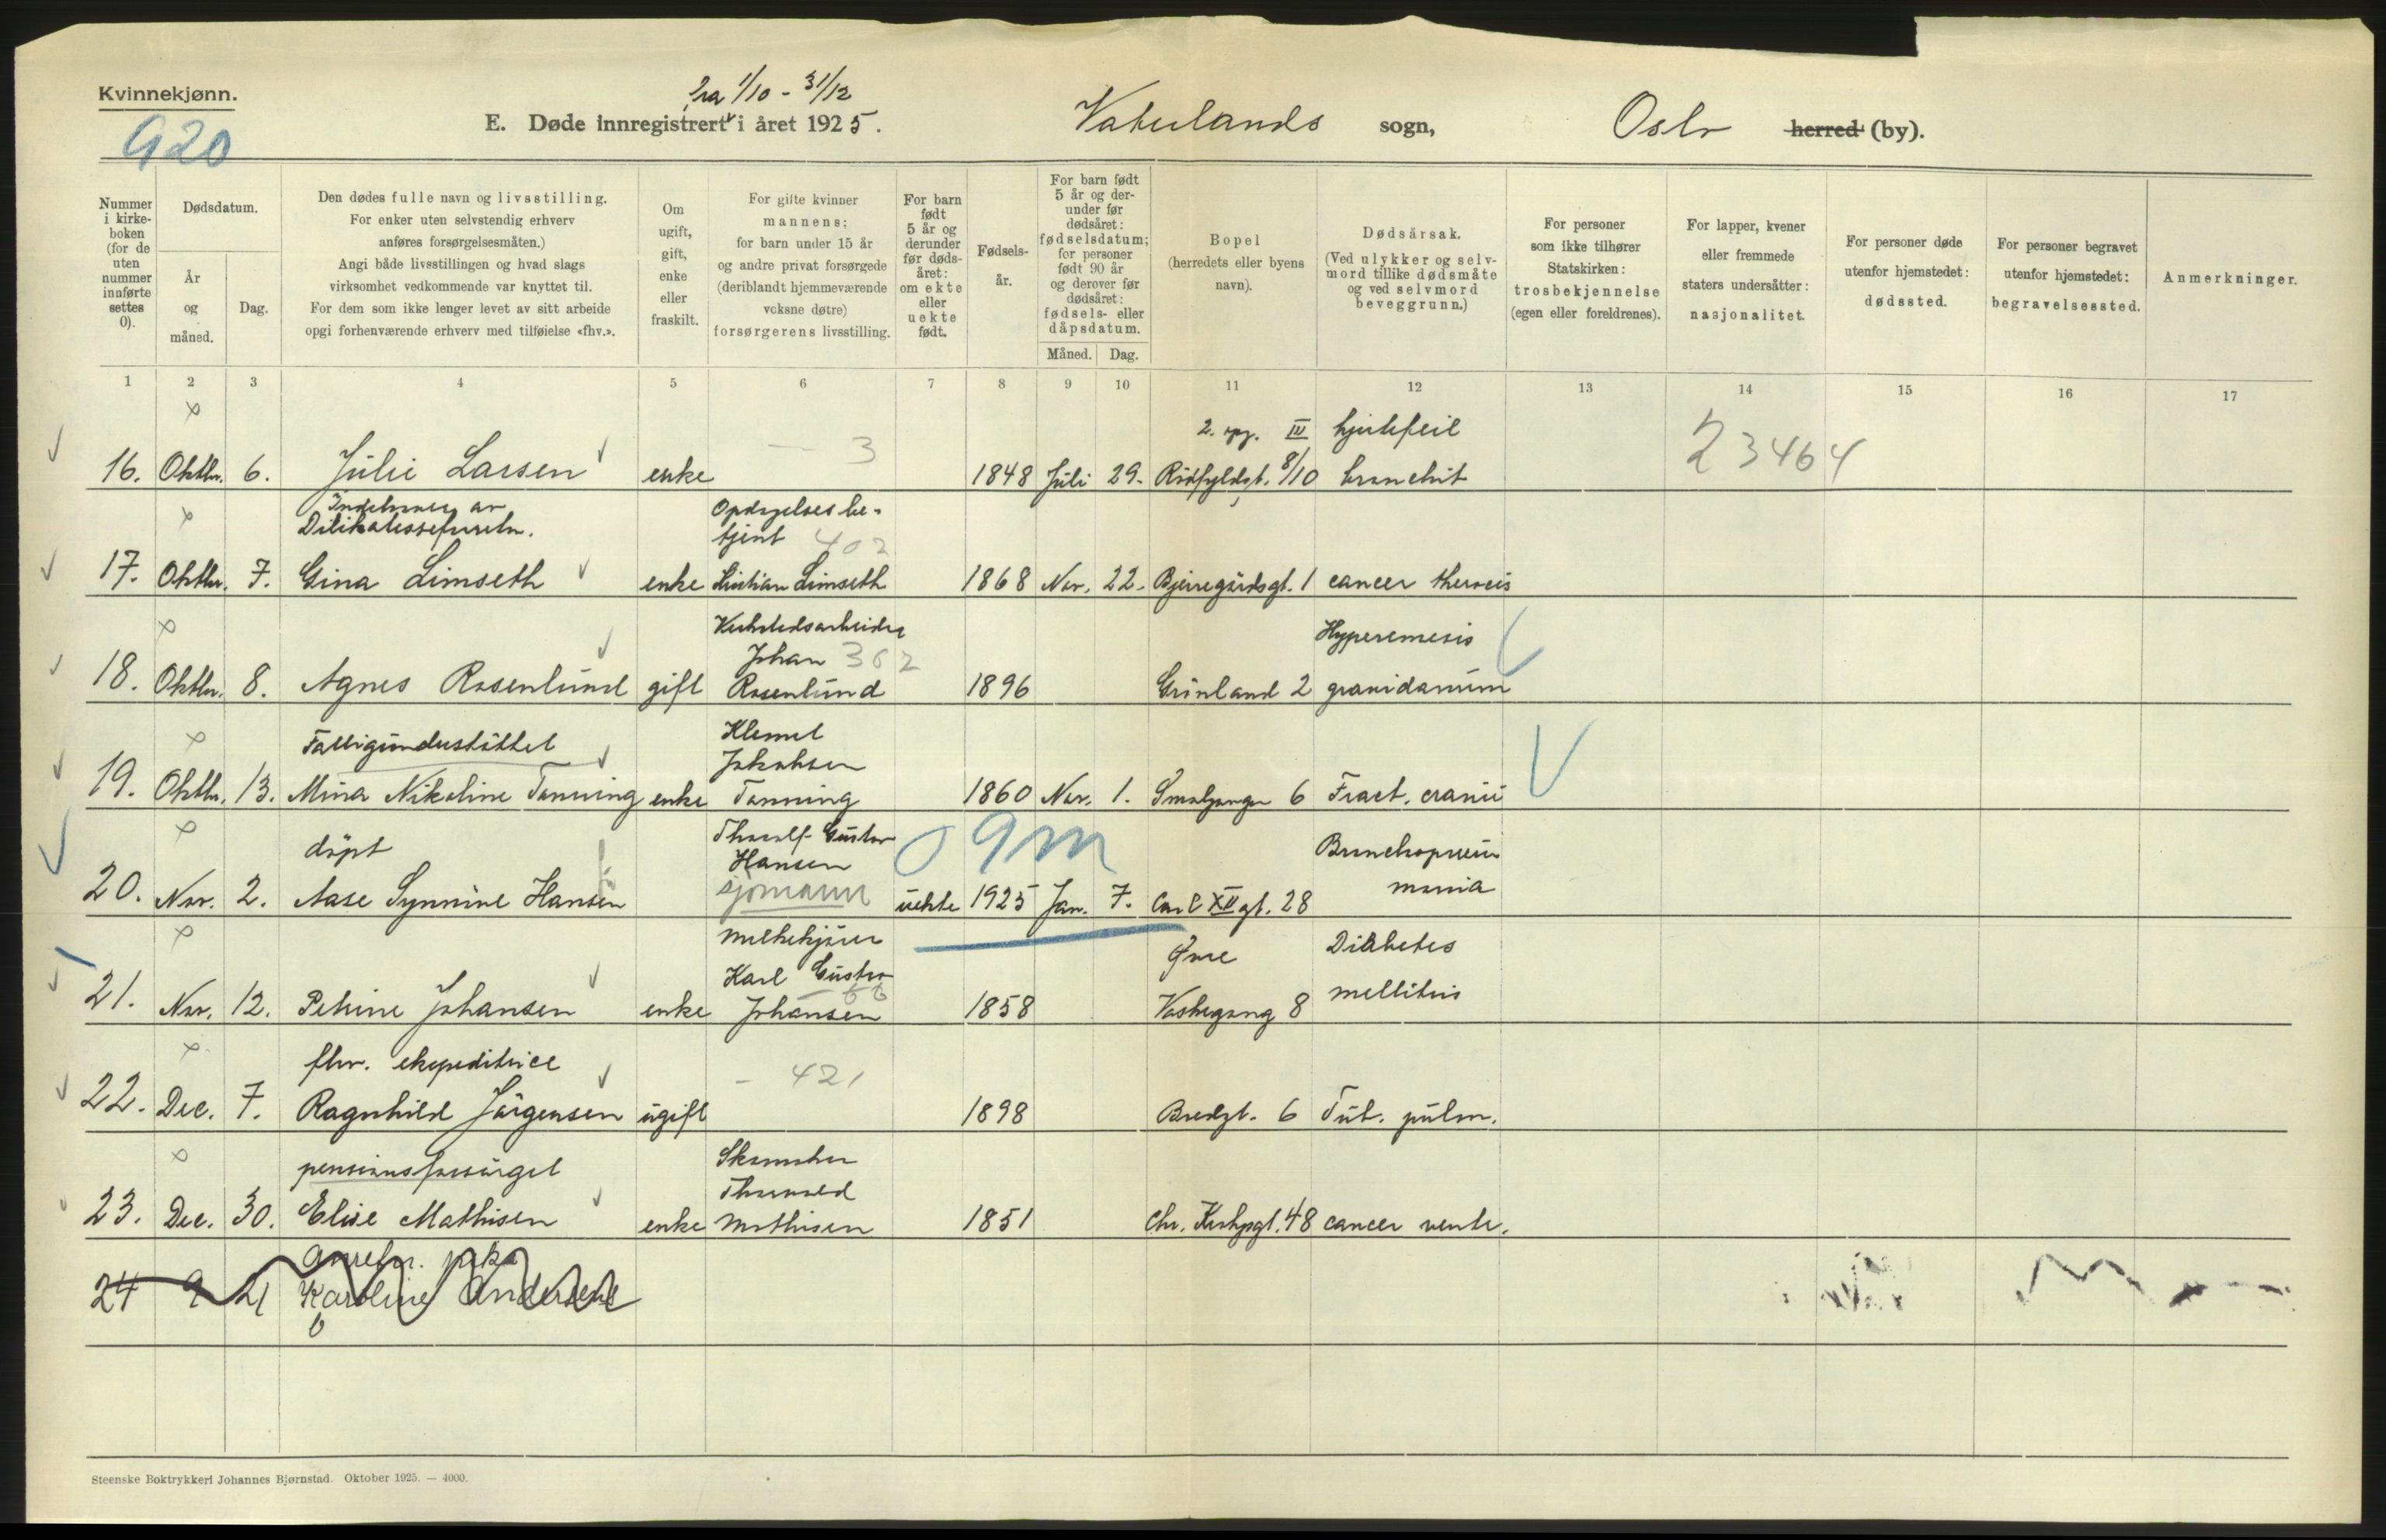 Kvinnekjønn.
920
fra 1/10 - 31/12
E. Døde innregistrert i året 1925.
Vaterlands sogn,
Oslo herred (by).
Nummer i kirkeboken (for de uten nummer innførte settes 0).
Dødsdatum.
År og måned.
Dag.
Den dødes fulle navn og livsstilling.
For enker uten selvstendig erhverv
anføres forsørgelsesmåten.)
Angi både livsstillingen og hvad slags
virksomhet vedkommende var knyttet til.
For dem som ikke lenger levet av sitt arbeide
opgi forhenværende erhverv med tilføielse «fhv.».
Om ugift, gift, enke eller fraskilt.
For gifte kvinner
mannens;
for barn under 15 år
og andre privat forsørgede
(deriblandt hjemmeværende
voksne døtre)
forsørgerens livsstilling.
For barn født 5 år og derunder før dødsåret: om ekte eller uekte født.
Fødselsår.
For barn født 5 år og derunder før dødsåret: fødselsdatum; for personer født 90 år og derover før dødsåret: fødsels- eller dåpsdatum.
Måned. Dag.
Bopel
(herredets eller byens
navn).
Dødsårsak.
(Ved ulykker og selvmord tillike dødsmåte
og ved selvmord
beveggrunn.)
For personer
som ikke tilhører
Statskirken:
trosbekjennelse
(egen eller foreldrenes).
For lapper, kvener
eller fremmede
staters undersåtter:
nasjonalitet.
For personer døde
utenfor hjemstedet:
dødssted.
For personer begravet
utenfor hjemstedet:
begravelsessted.
Anmerkninger.
1 2 3 4 5 6 7 8 9 10 11 12 13 14 15 16 17
2. opg. III hjertefeil
16. Oktbr. 6. Julie Larsen enke - 3 1848 Juli 29. Rödfyldgt. 8/10 bronchit 23464
Indehaver av Opdagelsesbe-
Delikatesseforretn. tjent 402
17. Oktbr. 7. Gina Limseth enke Kristian Limseth 1868 Nov. 22. Bjerregårdsgt. 1 cancer
Verkstedsarbeider Hyperemesis
Johan 362
18. Oktbr. 8. Agnes Rosenlund gift Rosenlund 1896 Grönland 2 gravidarum
Fattigunderstöttet Klemet
Jakobsen
19. Oktbr. 13. Mina Nikoline Tanning enke Tanning 1860 Nov. 1. Smalgangen 6 Fract. cranii
döpt Thoralf Gustav 09m Bronchopneu
Hansen
20. Nov. 2. Aase Synnöve Hansen sjömann uekte 1925 Jan. 7. Carl XII gt. 28 monia
melkekjörer Øvre Diabetes
Karl Gustav 66
21. Nov. 12. Petrine Johansen enke Johansen 1858 Vaskegang 8 mellitus
fhv. ekspeditrice - 421
22. Dec. 7. Ragnhild Jörgensen ugift 1898 Bredgt. 6 Tub. pulm.
pensionsforsörget Skomaker
Thorvald
23. Dec. 30. Elise Mathisen enke Mathisen 1851 Chr. Kroghsgt. 48 cancer ventr.
24 9 21 Karoline Andersen
Steenske Boktrykkeri Johannes Bjørnstad. Oktober 1925. — 4000.